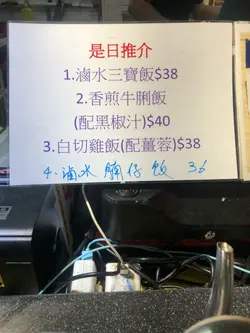 是日推介
1.滷水三寶飯$38
2.香煎牛脷飯
(配黑椒汁)$40
3.白切雞飯(配薑蓉)$38
4.滷水腩仔飯 36